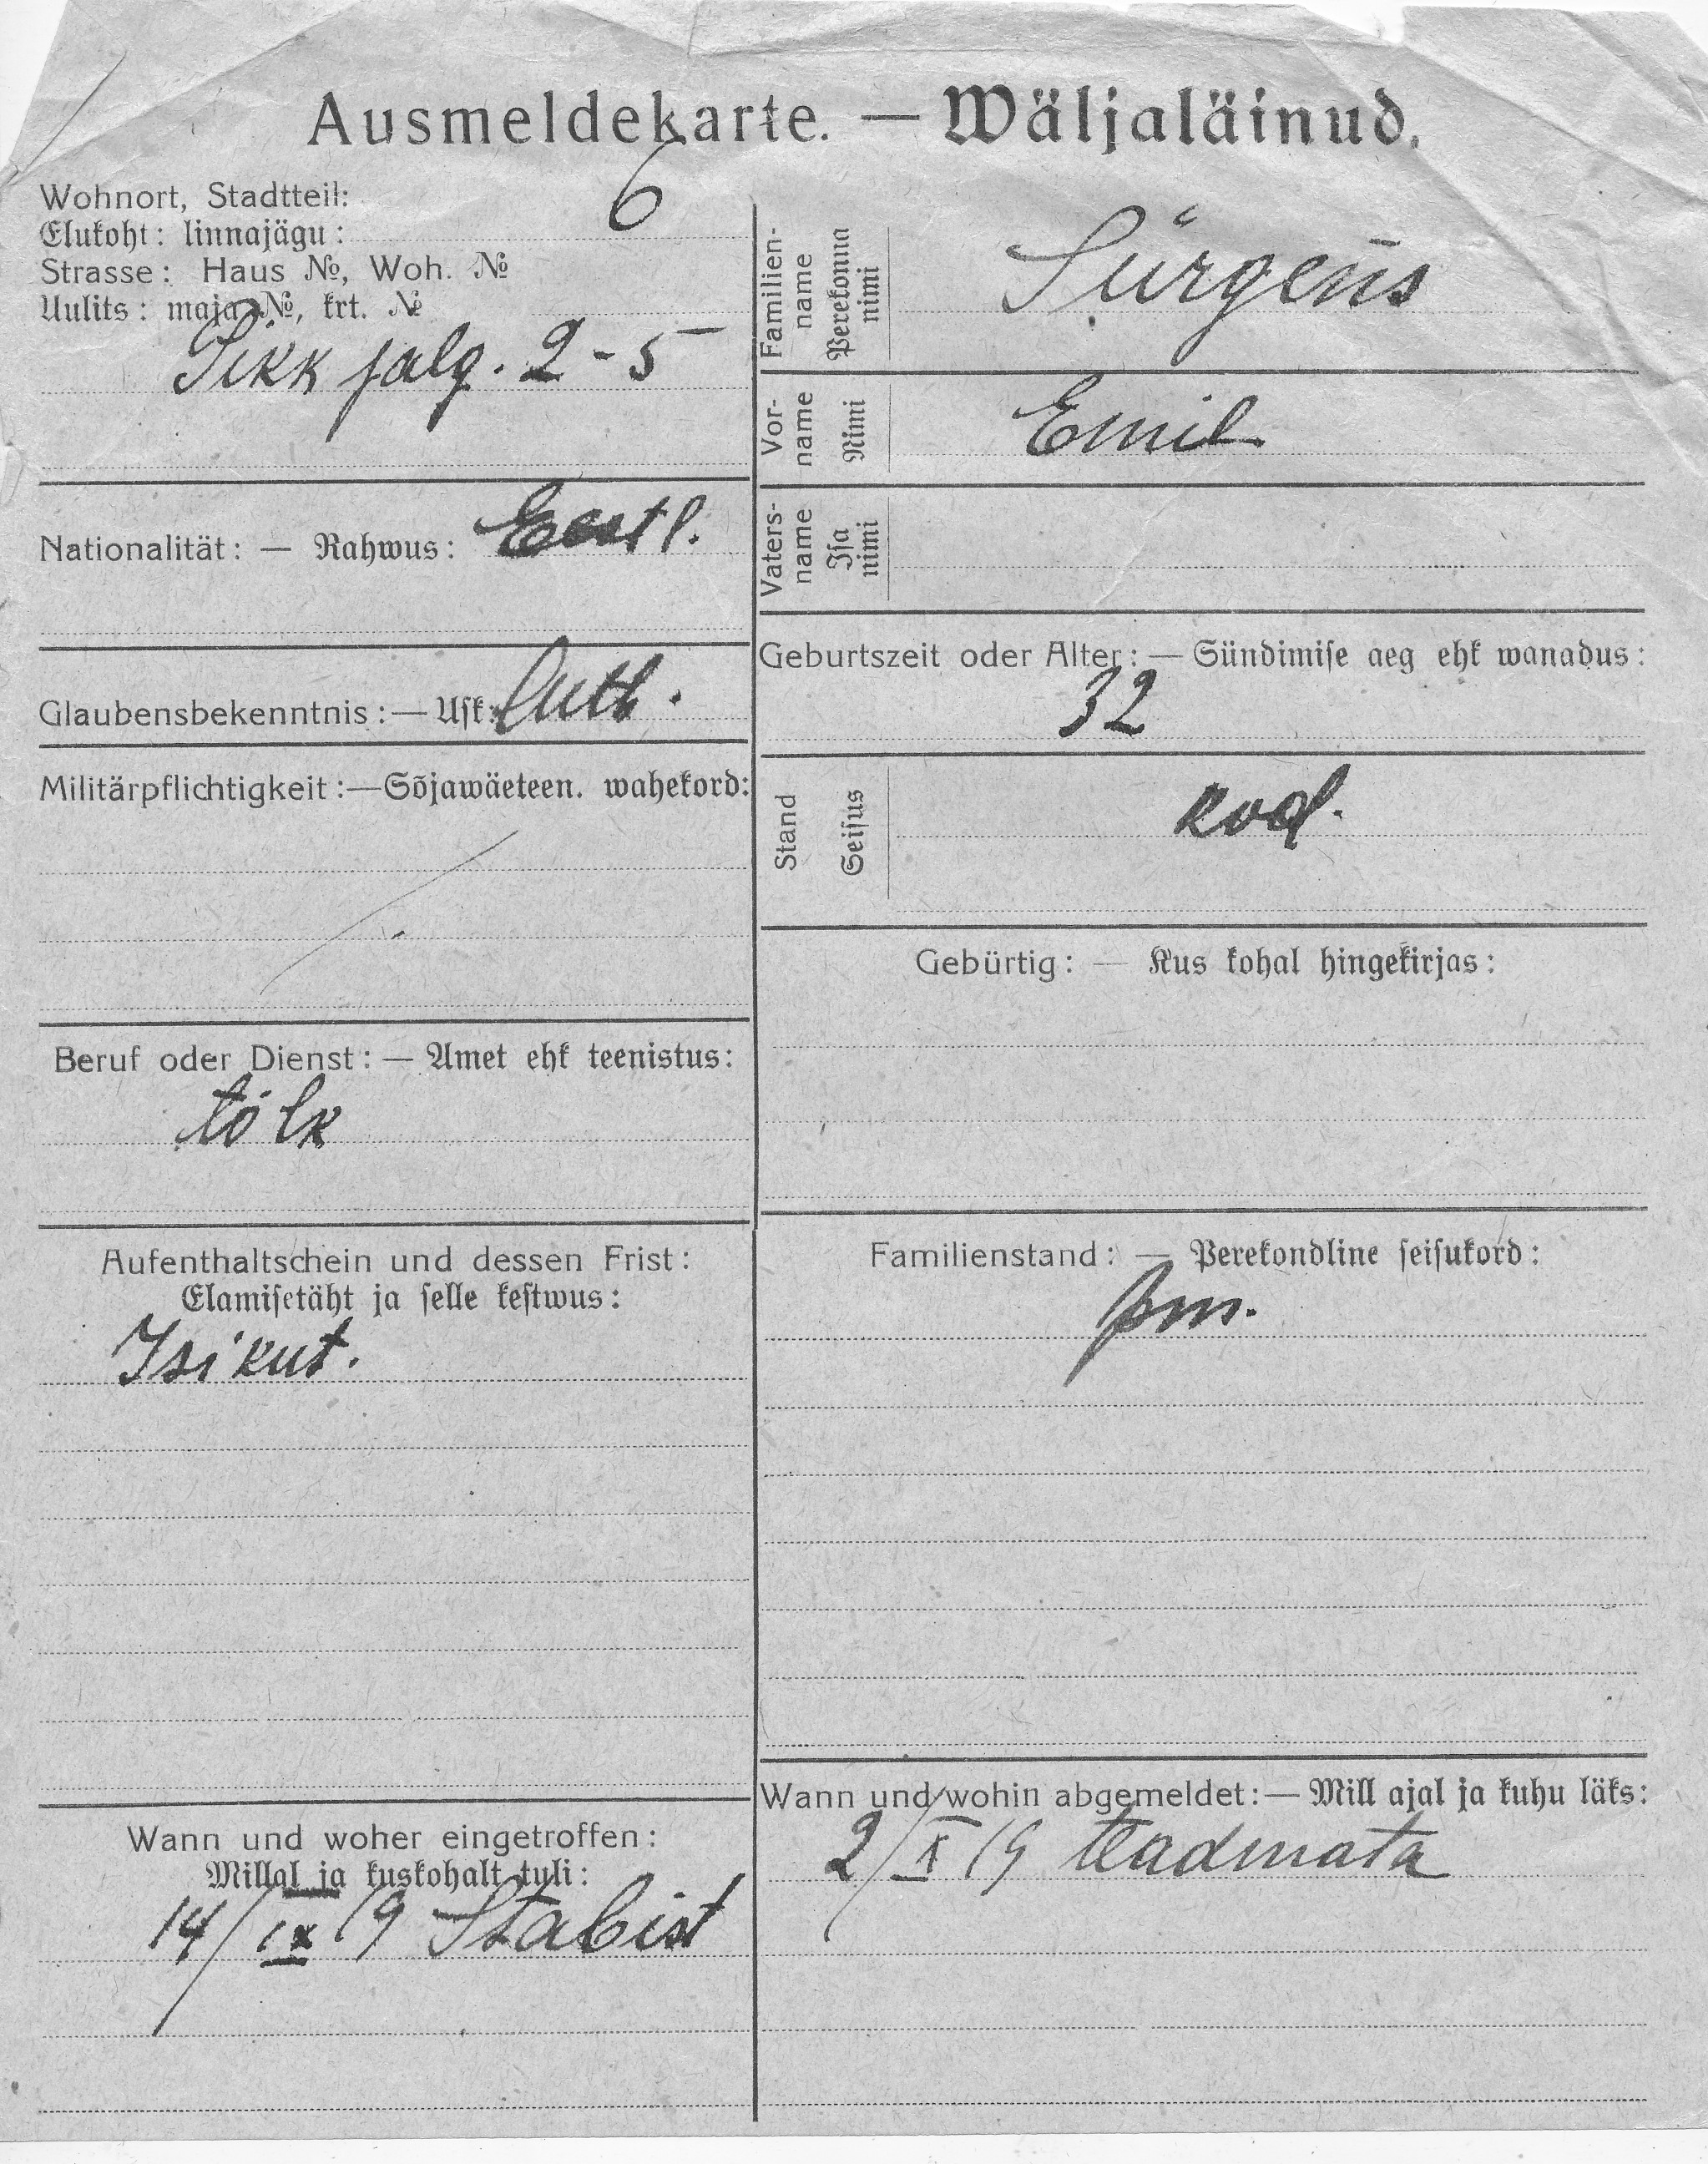 Ausmeldekarte. — Wäljaläinud.
Wohnort, Stadtteil:
Elukoht: linnajägu: 6
Strasse: Haus №, Woh. №
Uulits: maja №, krt. №
Pikk jalg. 2-5
Nationalität: — Rahwus: Eestl.
Glaubensbekenntnis: — Usk: Luth.
Militärpflichtigkeit: — Sõjawäeteen. wahekord:
Beruf oder Dienst: — Amet ehk teenistus:
tõlk
Aufenthaltschein und dessen Frist:
Elamisetäht ja selle kestwus:
Isikut.
Wann und woher eingetroffen:
Millal ja kuskohalt tuli:
14/IX 19 Stabist
Familien-name Perekonna nimi Sürgens
Vor-name Nimi Emil
Vaters-name Isa nimi
Geburtszeit oder Alter: — Sündimise aeg ehk wanadus:
32
Stand Seisus kod.
Gebürtig: — Kus kohal hingekirjas:
Familienstand: — Perekondline seisukord:
Wann und wohin abgemeldet: — Mill ajal ja kuhu läks:
2/X 19 teadmata